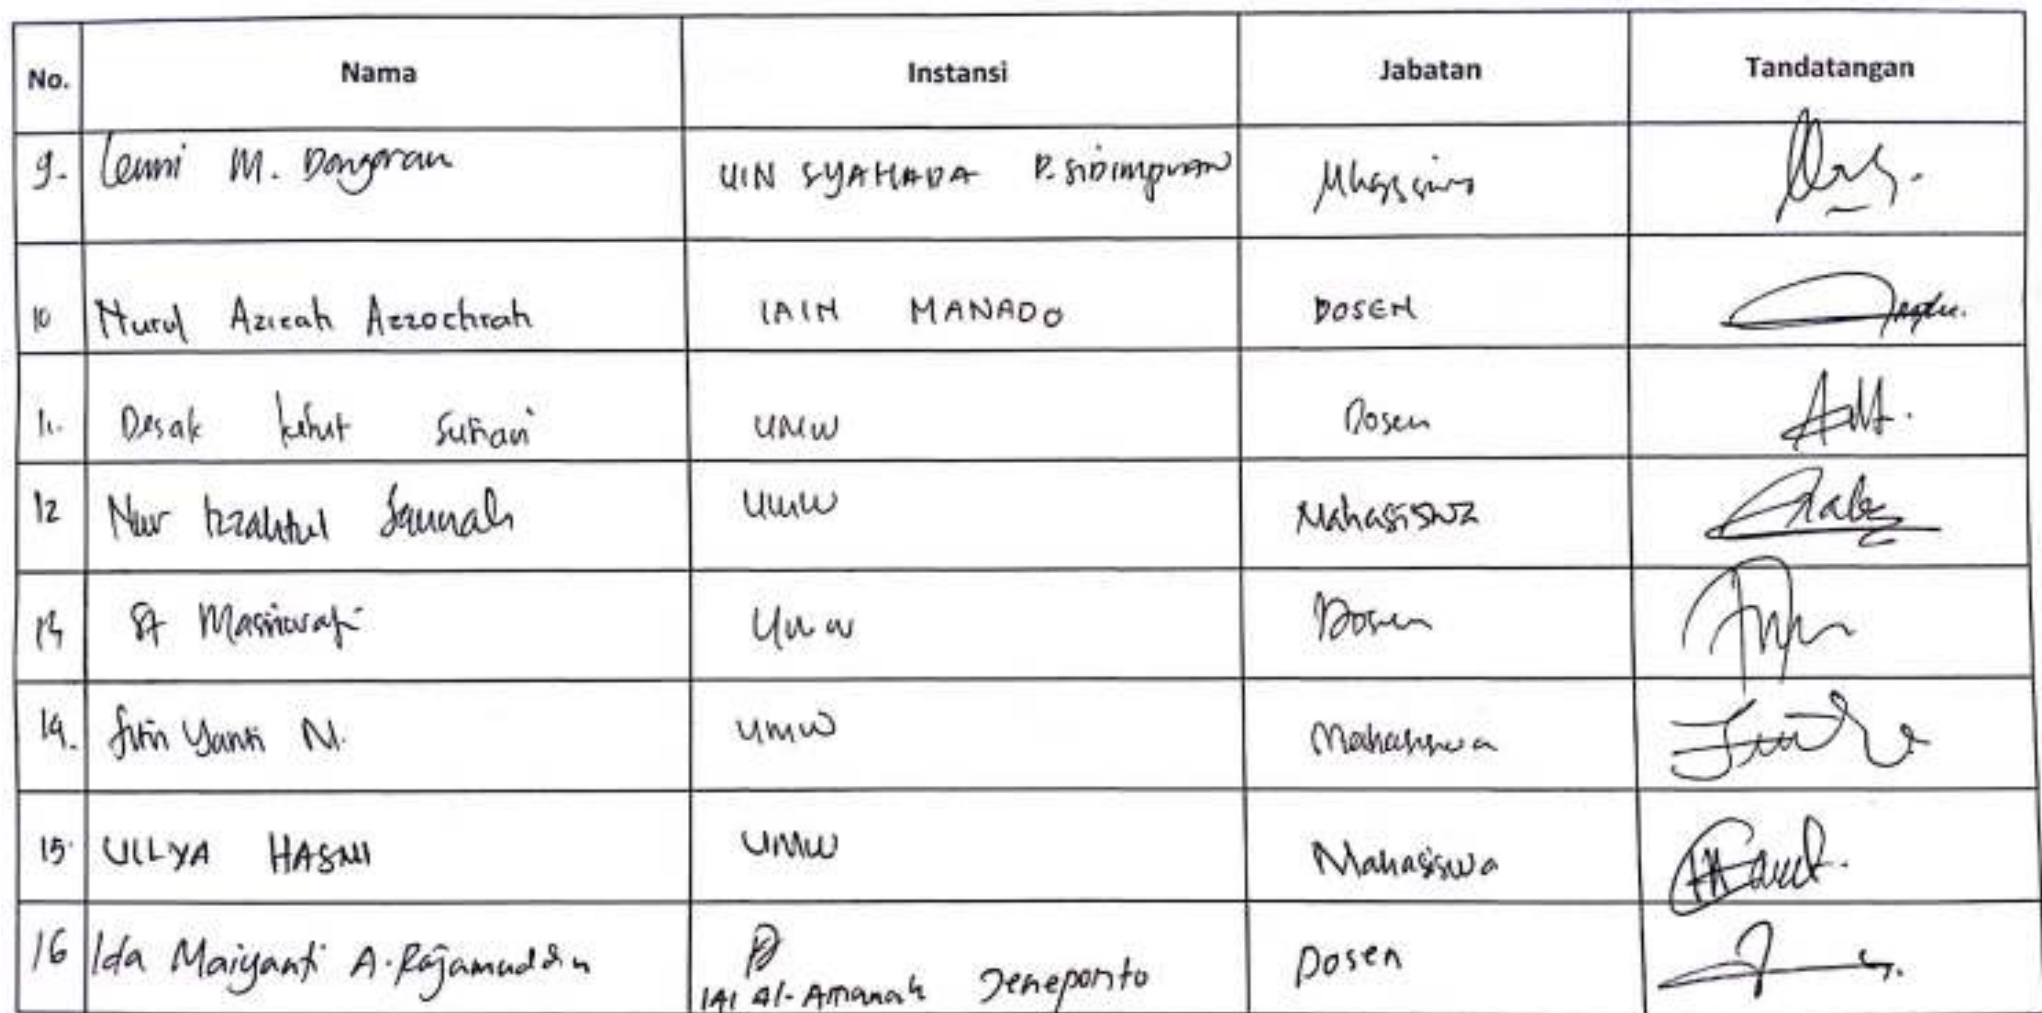 No. Nama Instansi Jabatan Tandatangan
9. Lenni M. Dongoran UIN SYAHADA P. Sidimpuan
10 Nurul Azizah Azzochrah IAIN MANADO DOSEN
11. Desak Ketut Sutiari UMW Dosen
12 Nur Izzahtul Jannah UMW Mahasiswa
13 St Masniarati UMW Dosen
14. Fitri Yanti N. UMW Mahasiswa
15. ULLYA HASMI UMW Mahasiswa
16 Ida Maiyanti A. Rajamuddin IAI Al-Amanah Jeneponto Dosen